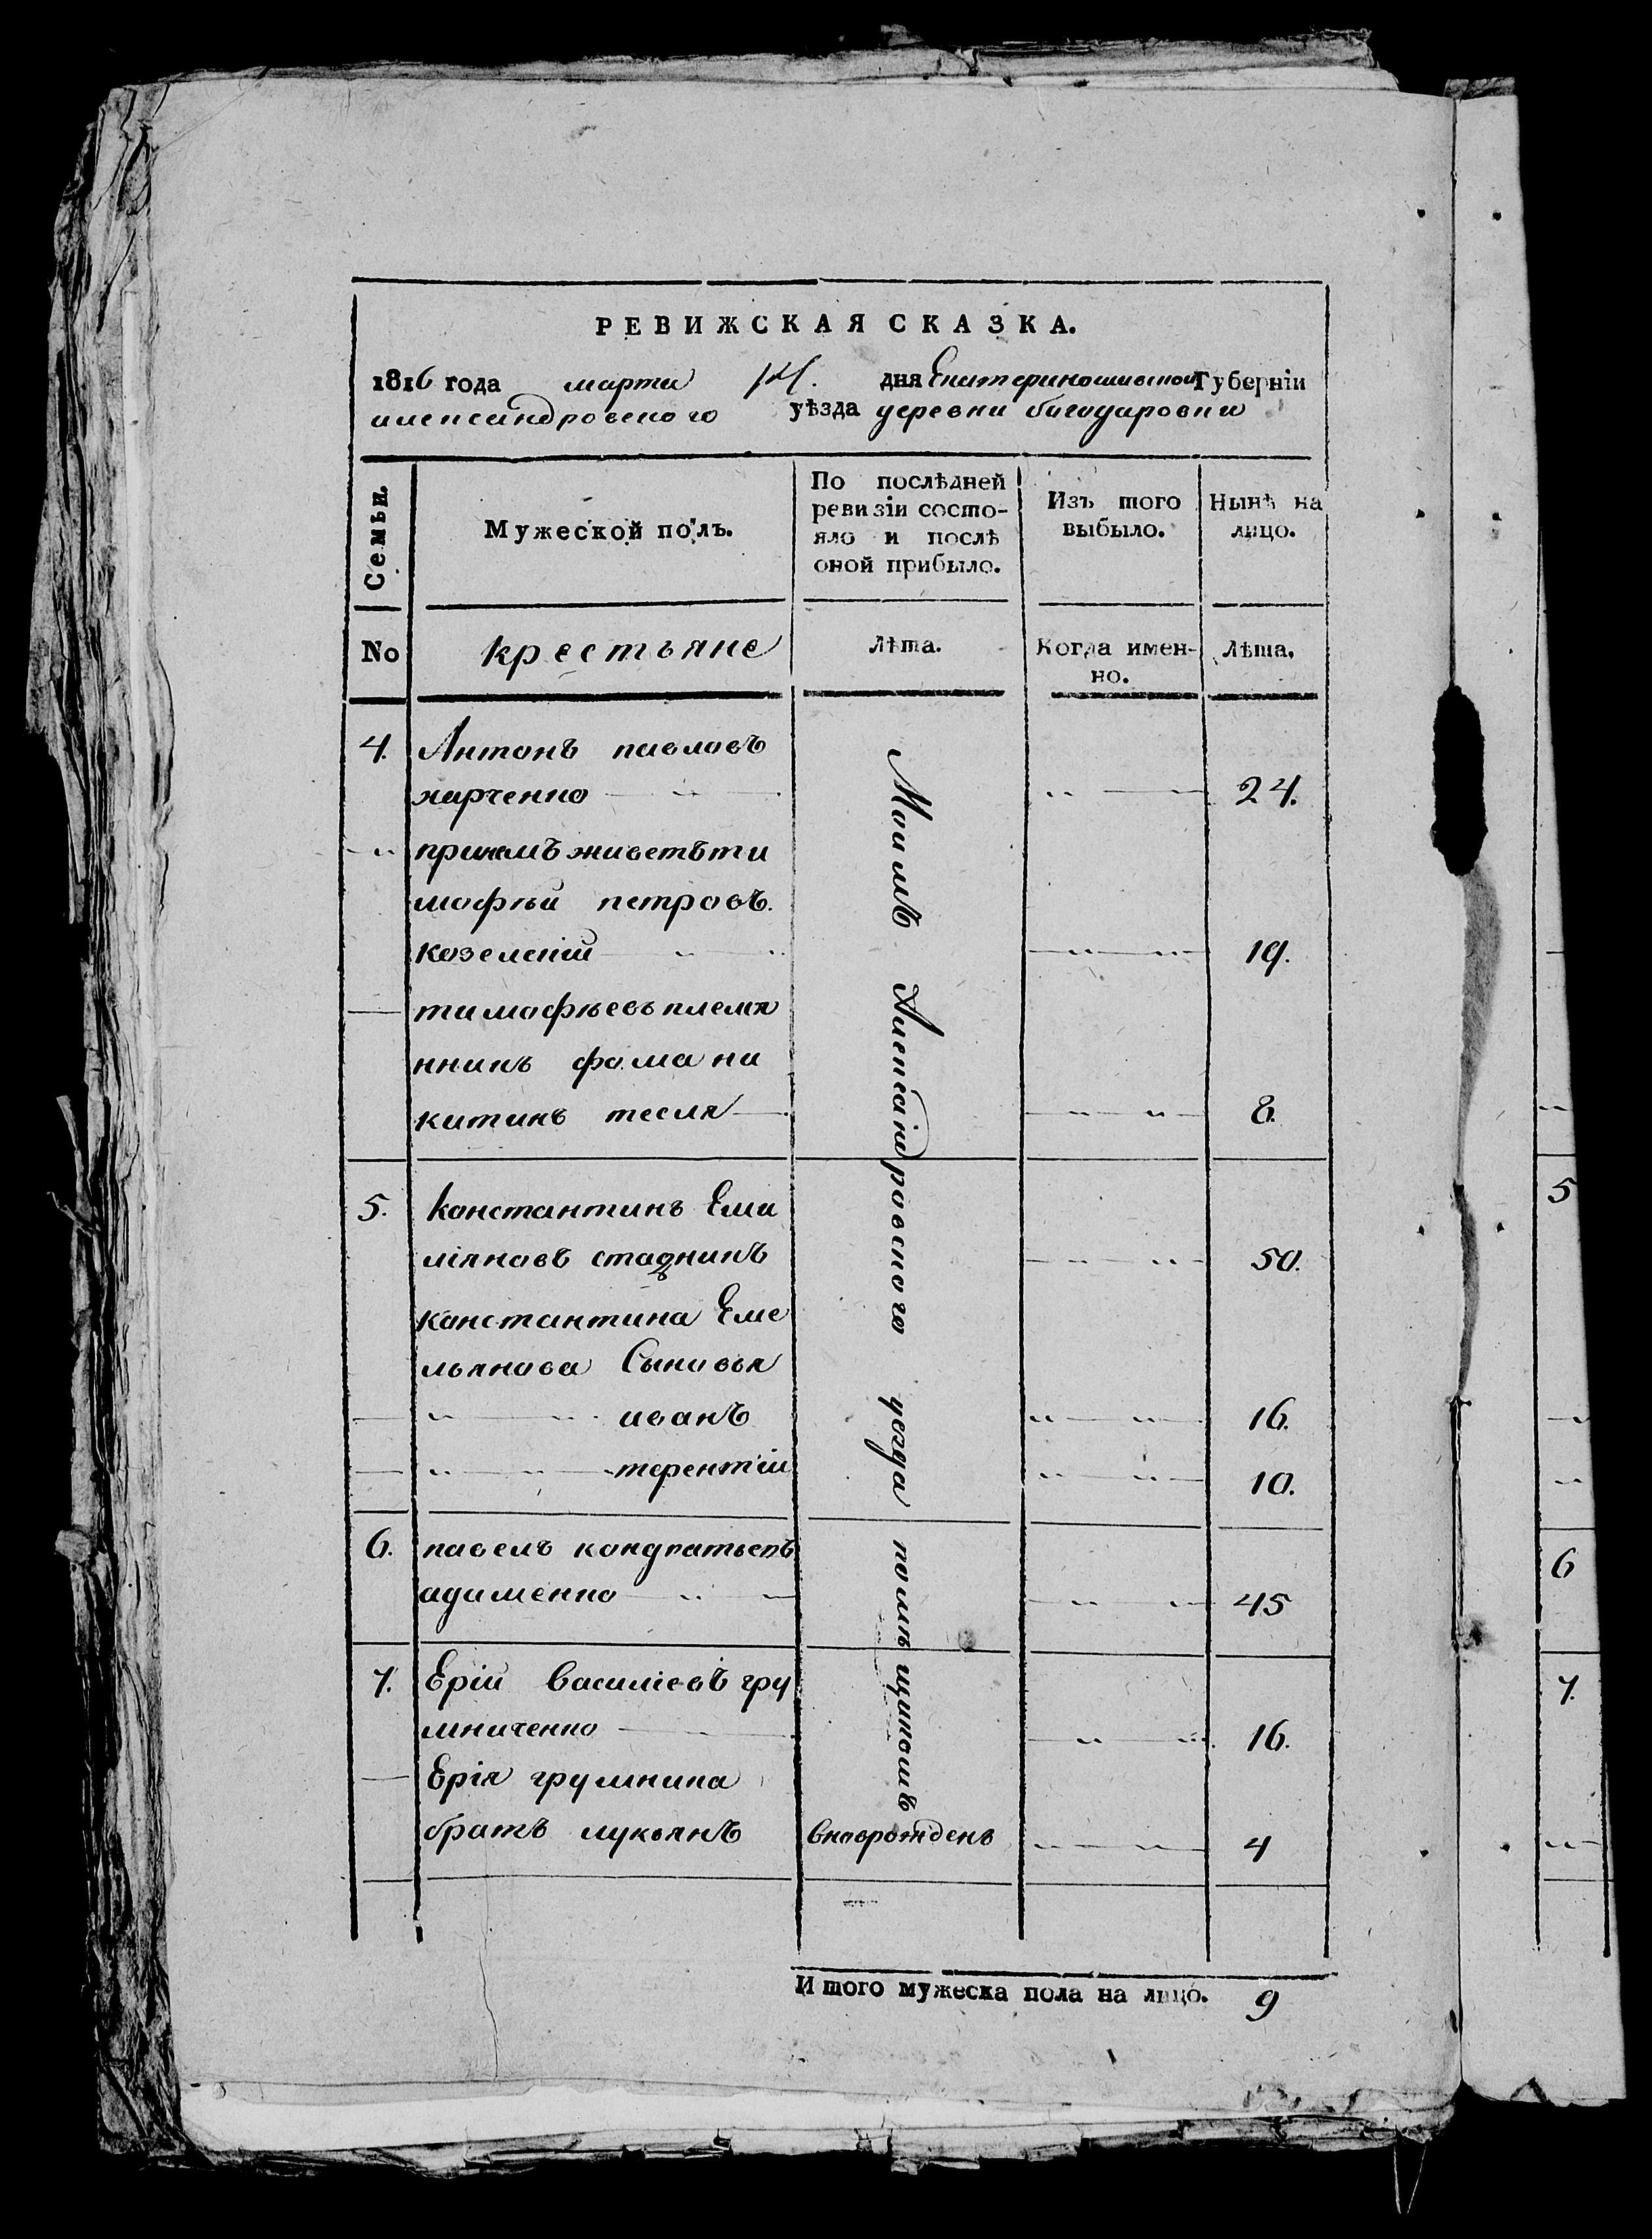 РЕВИЖСКАЯ СКАЗКА.
1816 года марта 14. дня Екатериношавской Губерніи
александровского уѣзда деревни багодаровки
Семьи.
Мужеской полъ.
По послѣдней
ревизіи состо-
яло и послѣ
оной прибыло.
Изъ того
выбыло.
Нынѣ на
лицо.
No
крестьяне
Лѣта.
Когда имен-
но.
Лѣта.
4. Антонъ павловъ
харченко 24.
принемъ живетъ ти
мофѣй петровъ
козелскій 19.
тимофѣевъ племя
нникъ фома ни
китинъ тесля 8.
5. константинъ Еми
ліяновъ стадникъ 50.
константина Еме
льянова Сыновья
иванъ 16.
терентій 10.
6. павелъ кондратьевъ 6
адаменко 45
7. Ерій василіевъ гру 7.
шниченко 16.
Ерія грушника
братъ лукьянъ вноврожденъ 4
Моимъ Александровского уезда помѣщикомъ
5
Итого мужеска пола на лицо. 9